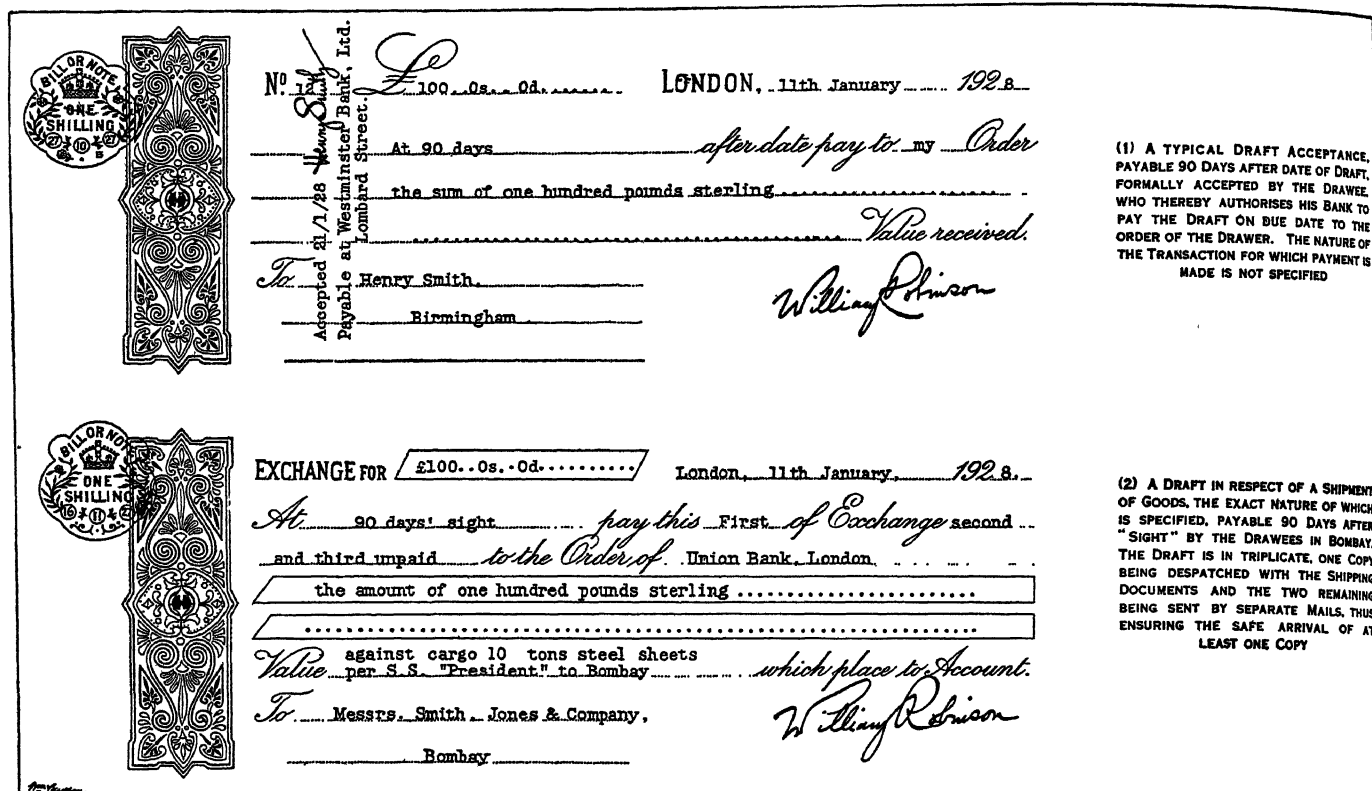 BILL OR NOTE
ONE
SHILLING
27 10 27
Nº 12
£100..0s.. 0d.......
LONDON, 11th January 1928
At 90 days after date pay to my Order
the sum of one hundred pounds sterling
Value received.
To Henry Smith,
Birmingham
William Robinson
Accepted 21/1/28 Henry Smith
Payable at Westminster Bank, Ltd.
Lombard Street.
(1) A TYPICAL DRAFT ACCEPTANCE,
PAYABLE 90 DAYS AFTER DATE OF DRAFT,
FORMALLY ACCEPTED BY THE DRAWEE,
WHO THEREBY AUTHORISES HIS BANK TO
PAY THE DRAFT ON DUE DATE TO THE
ORDER OF THE DRAWER. THE NATURE OF
THE TRANSACTION FOR WHICH PAYMENT IS
MADE IS NOT SPECIFIED
BILL OR NOTE
ONE
SHILLING
16 11 27
EXCHANGE FOR £100..0s.-0d..........
London, 11th January, 1928.
At 90 days' sight pay this First of Exchange second
and third unpaid to the Order of Union Bank, London
the amount of one hundred pounds sterling ........................
Value against cargo 10 tons steel sheets
per S.S. "President" to Bombay which place to Account.
To Messrs. Smith Jones & Company,
Bombay
William Robinson
(2) A DRAFT IN RESPECT OF A SHIPMENT
OF GOODS, THE EXACT NATURE OF WHICH
IS SPECIFIED, PAYABLE 90 DAYS AFTER
"SIGHT" BY THE DRAWEES IN BOMBAY.
THE DRAFT IS IN TRIPLICATE, ONE COPY
BEING DESPATCHED WITH THE SHIPPING
DOCUMENTS AND THE TWO REMAINING
BEING SENT BY SEPARATE MAILS, THUS
ENSURING THE SAFE ARRIVAL OF AT
LEAST ONE COPY